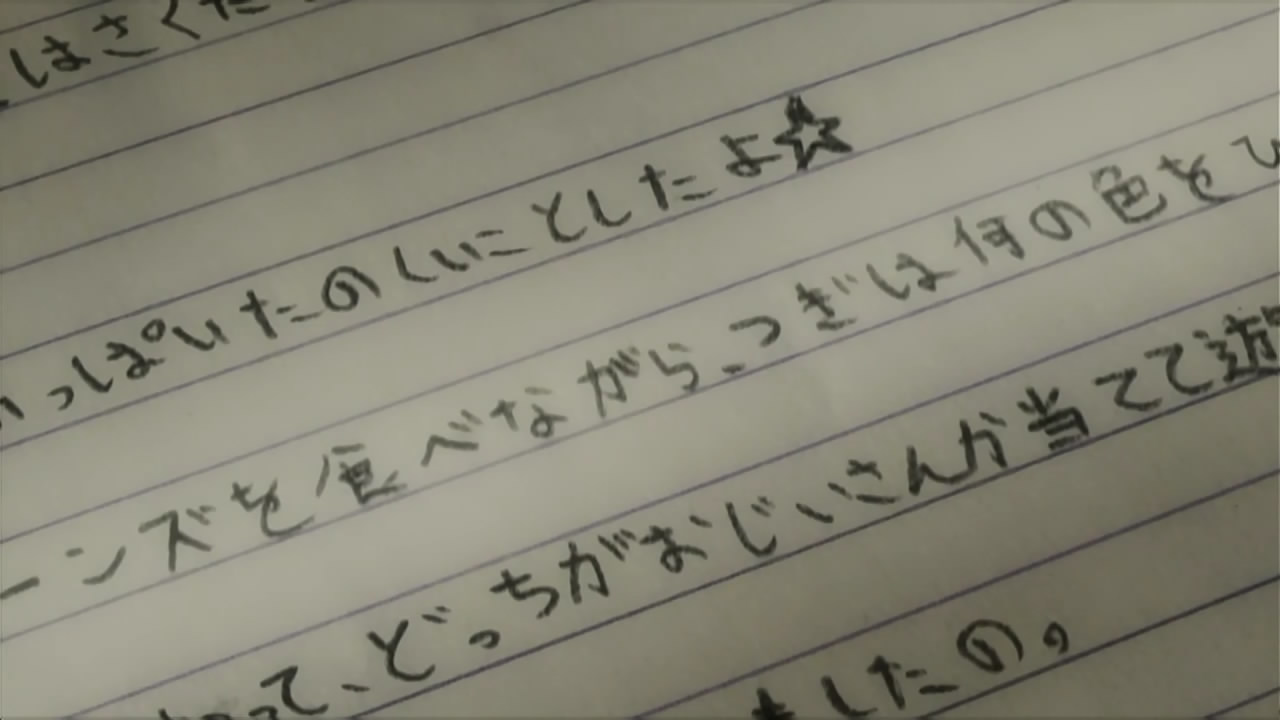 はさくた
っぱいたのしいことしたよ☆
ーンズを食べながら、つぎは何の色をひ
って、どっちがおじいさんか当てて遊
したの。